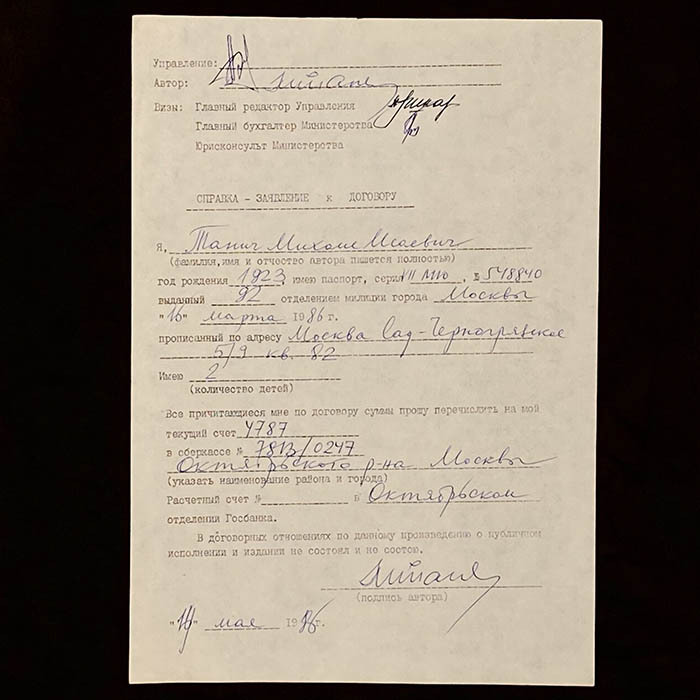 Управление:
Автор:
Визы: Главный редактор Управления
Главный бухгалтер Министерства
Юрисконсульт Министерства
СПРАВКА - ЗАЯВЛЕНИЕ к ДОГОВОРУ
Я, Танич Михаил Исаевич
(фамилия,имя и отчество автора пишется полностью)
год рождения 1923, имею паспорт, серия VII МЮ, № 548840
выданный 92 отделением милиции города Москвы
"16" марта 1986г.
прописанный по адресу Москва Сад-Черногрязская
5/9 кв. 82
Имею 2
(количество детей)
Все причитающиеся мне по договору суммы прошу перечислить на мой
текущий счет 4787
в сберкассе № 7813/0247
Октябрьского р-на Москвы
(указать наименование района и города)
Расчетный счет № в Октябрьском
отделении Госбанка.
В договорных отношениях по данному произведению о публичном
исполнении и издании не состоял и не состою.
(подпись автора)
мая 1986г.